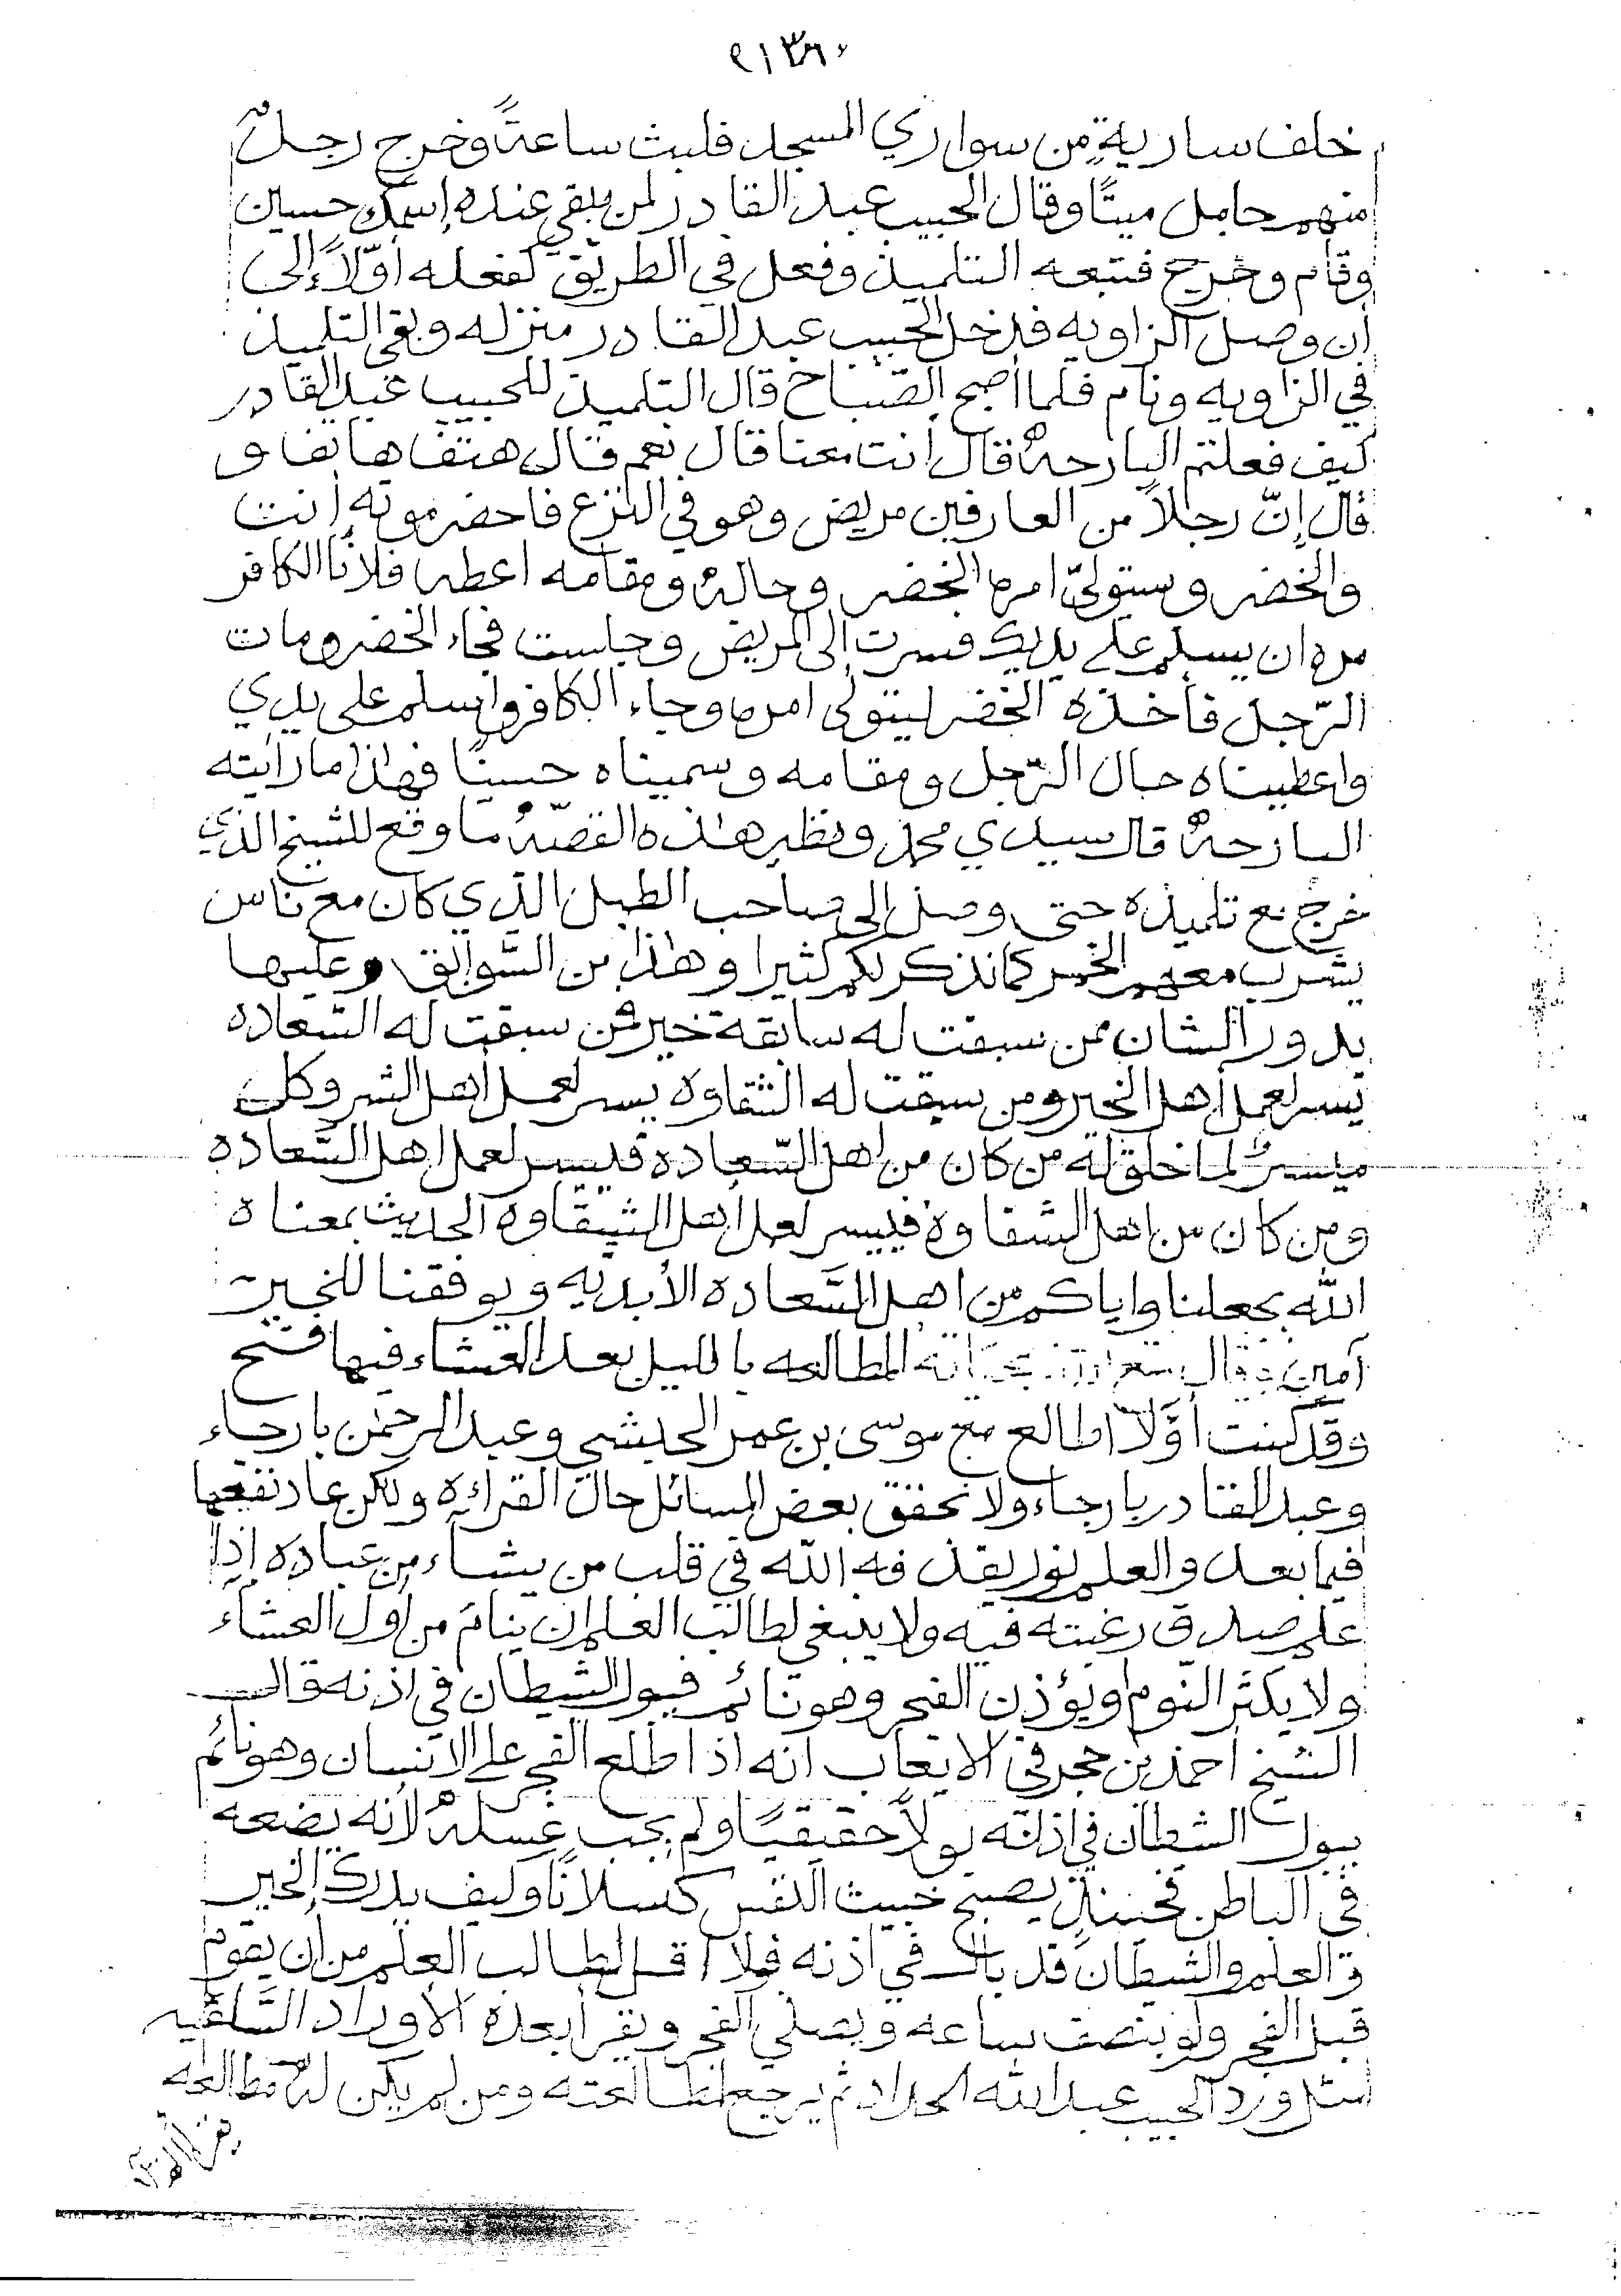 خلف ساريةٍ من سواري المسجد فلبث ساعةً وخرج رجلٌ
منهم حامل ميتًا وقال الحبيب عبد القادر لمن بقي عنده إسمك حسين
وقام وخرج فتبعه التلميذ وفعل في الطريق كفعله أوّلاً إلى
أن وصل الزاويه فدخل الحبيب عبد القادر منزله وبقي التلميذ
في الزاويه ونام فلما أصبح الصّباح قال التلميذ للحبيب عبد القادر
كيف فعلتم البارحهْ قال أنت معنا قال نعم قال هتف هاتف و
قال إنّ رجلاً من العارفين مريض وهو في النزع فاحضر موته أنت
والخضر وسيتولىّ امره الخضر وحالهْ ومقامه اعطه فلانًا الكافر
مره ان يسلم على يديك فسرت إلى المريض وجلست فجاء الخضر ومات
الرّجل فأخذه الخضر ليتولى امره وجاء الكافر واسلم على يدي
واعطيناه حال الرّجل ومقامه وسميناه حسينًا فهاذا ما رأيته
البارحهْ قال سيدي محمد ونظير هاذه القصّهْ ما وقع للشيخ الذي
خرج مع تلميذه حتى وصل إلى صاحب الطبل الذي كان مع ناس
يشرب معهم الخمر كما نذكر لكم كثيرا وهاذا من السّوابق وعليها
يدور الشان من سبقت له سابقة خير فمن سبقت له السّعاده
يسر لعمل أهل الخير ومن سبقت له الشقاوه يسر لعمل أهل الشر وكل
ميسرٌ لما خلق له من كان من اهل السّعاده فييسر لعمل اهل السّعاده
ومن كان من اهل الشقاوة فييسر لعمل أهل الشقاوه الحديث بمعناه
الله يجعلنا واياكم من اهل السّعاده الأبديّه ويوفقنا للخير
آمين وقال المطالعه بالليل بعد العشاء فيها فتح
وقد كنت أوّلاً اطالع مع موسى بن عمر الحبشي وعبد الرحمن بارجاء
وعبد القادر بارجاء ولا نحقق بعض المسائل حال القراءه ولكن عاد نفعها
فيما بعد والعلم نور يقذفه الله في قلب من يشاء من عباده إذا
علم صدق رغبته فيه ولا ينبغي لطالب العلم ان ينام من أول العشاء
ولا يكثر النوم أو يؤذن الفجر وهو نائم فيبول الشيطان في اذنه قال
الشيخ أحمد بن حجر في الايعاب انه اذا طلع الفجر على الانسان وهو نائم
يبول الشطان في اذنه بولاً حقيقيًا ولم يجب غسلهْ لأنه يضعه
في الباطن فحينئذٍ يصبح خبيث النفس كسلانًا وكيف يدرك الخير
والعلم والشيطان قد بال في اذنه فلا اقل لطالب العلم من أن يقوم
قبل الفجر ولو بنصف ساعه ويصلي الفجر ويقرأ بعده الأوراد السّلفيّه
مثل ورد الحبيب عبد الله الحداد ثم يرجع لمطالعته ومن لم يكن لهْ مطالعه